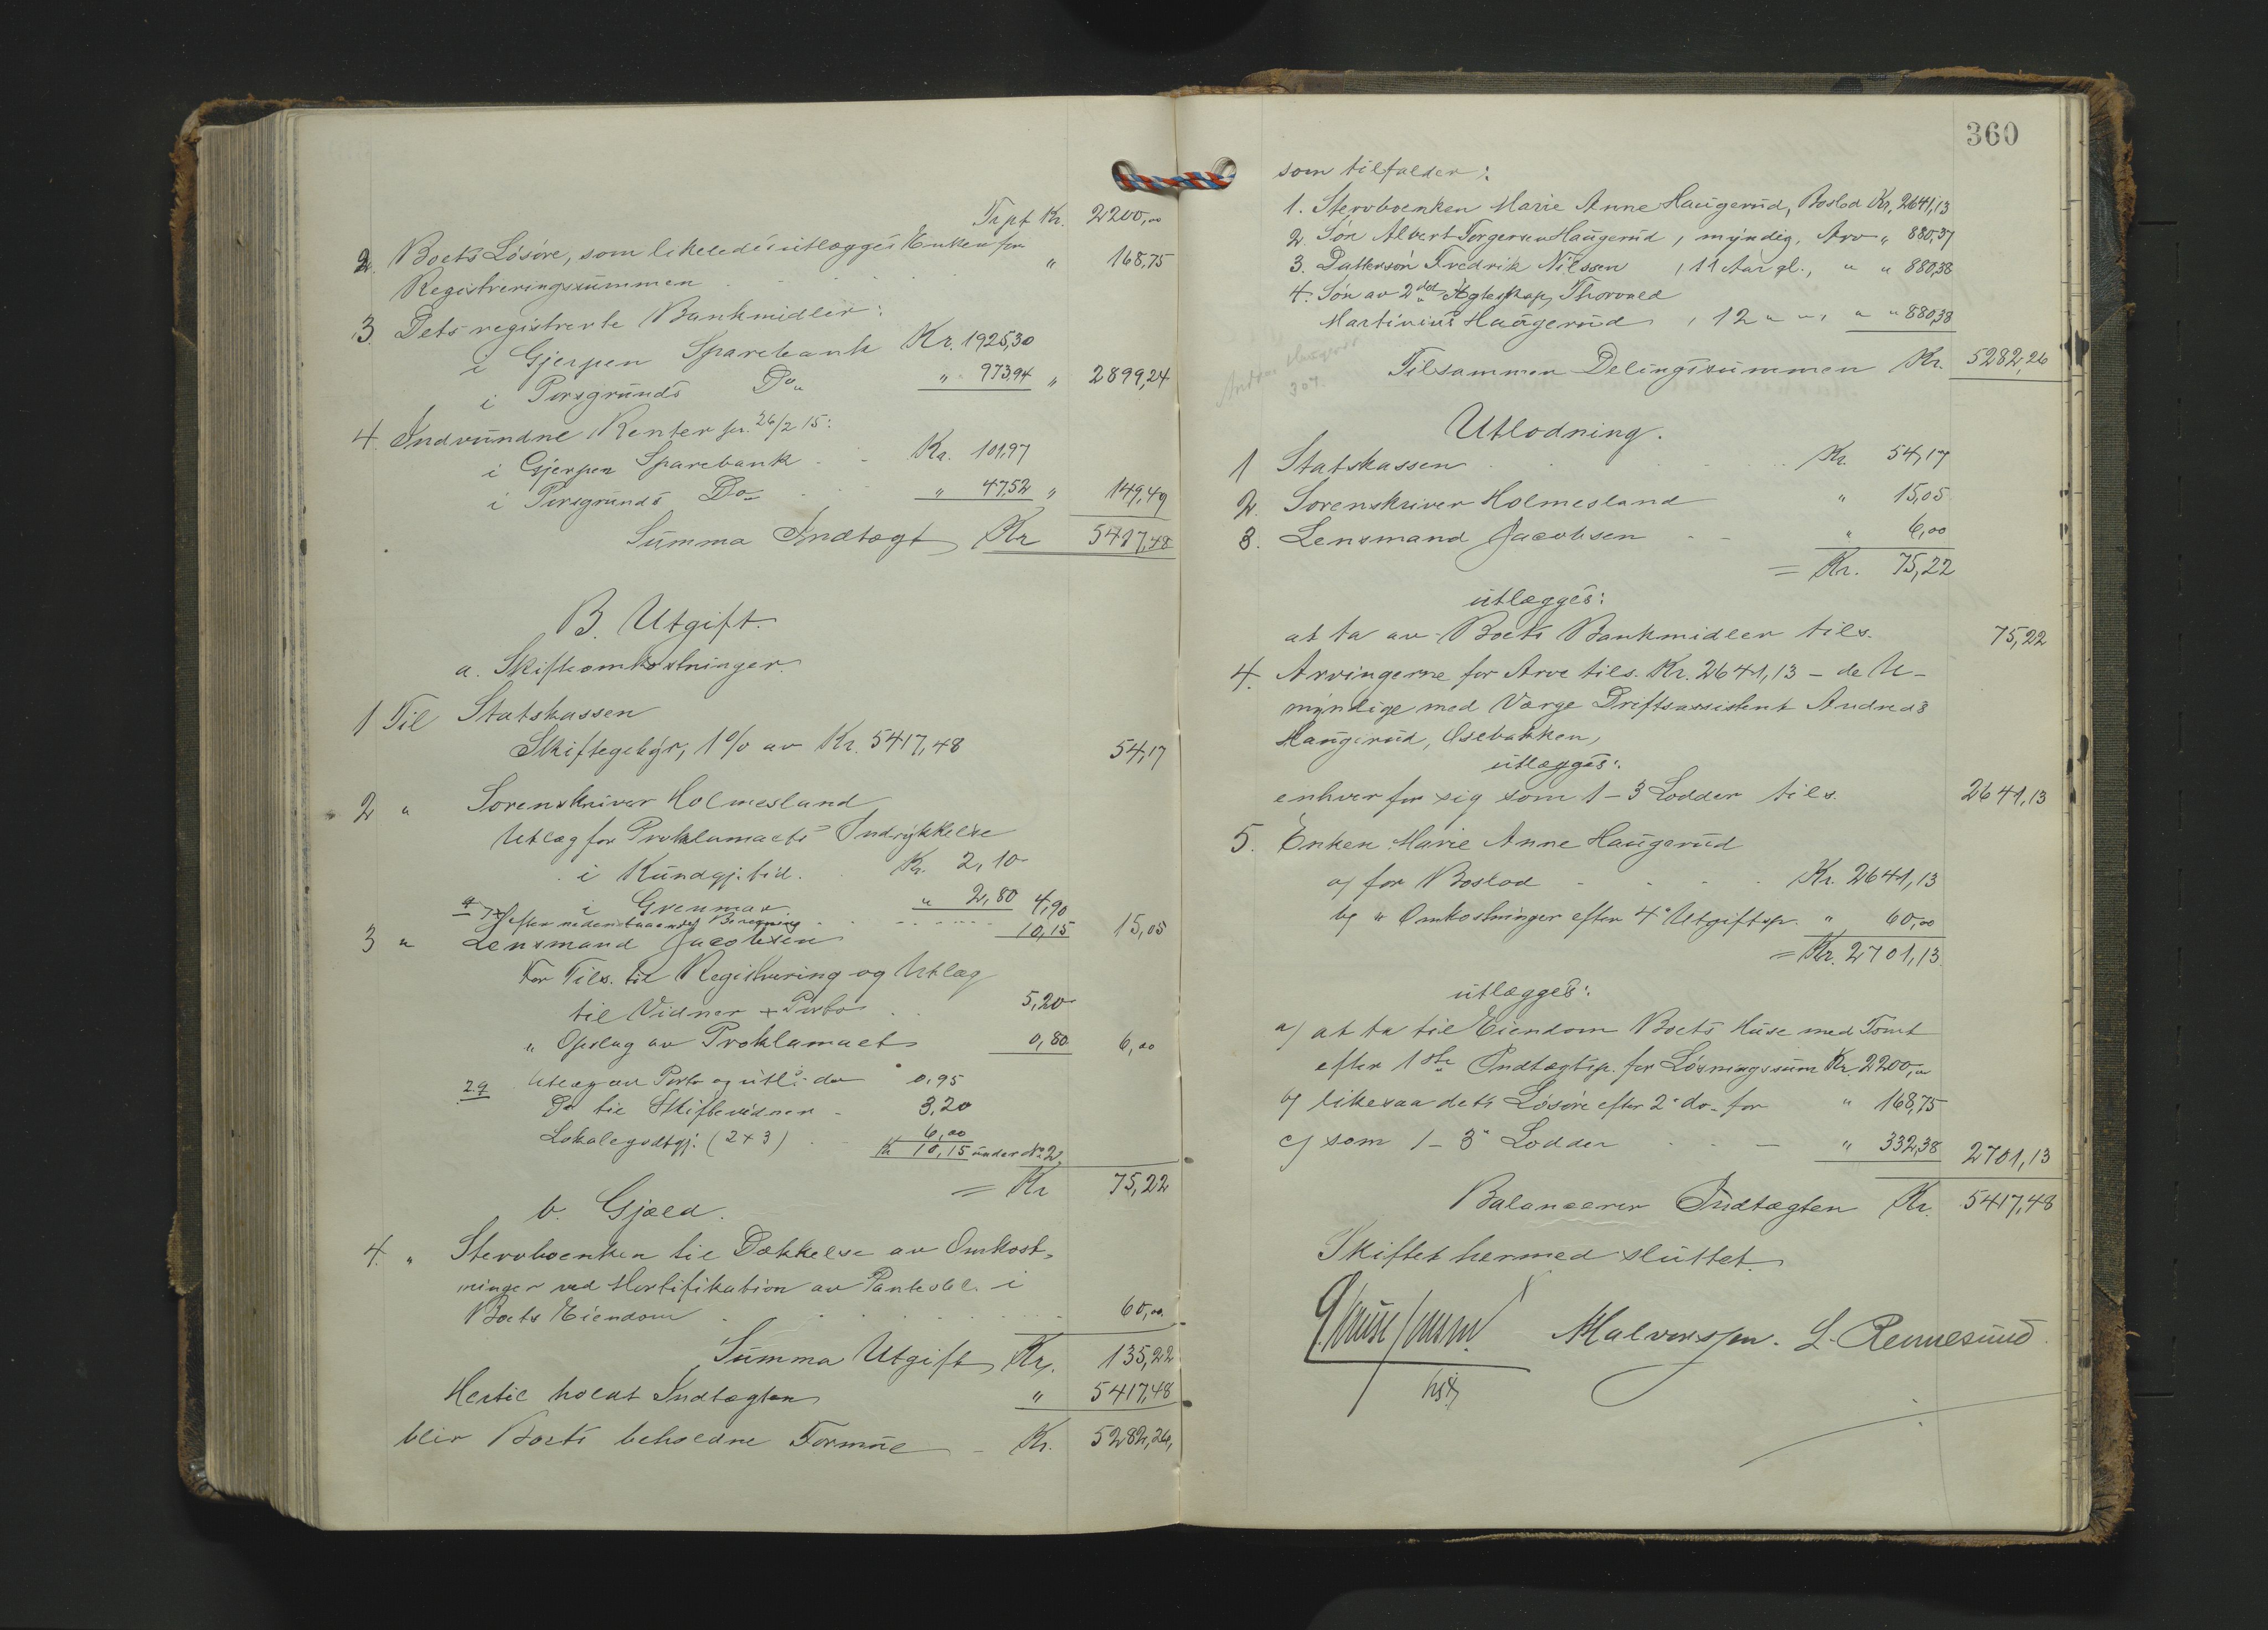 Trpt Kr. 2200,00
2. Boets Løsøre, som likeledes utlægges Enken for
Registreringssummen " 168,75
3. Dets registrerte Bankmidler:
i Gjerpen Sparebank Kr. 1925,30
i Porsgrunds Do " 973,94 " 2899,24
4. Indvundne Renter pr. 26/2 15:
i Gjerpen Sparebank Kr. 101,97
i Porsgrunds Do " 47,52 " 149,49
Summa Indtægt Kr 5417,48
B. Utgift.
a. Skifteomkostninger.
1 Til Statskassen
Skiftegebyr, 1% av Kr. 5417,48 54,17
2 " Sorenskriver Holmesland
Utlæg for Proklamaets Indrykkelse
i Kundgj.tid. Kr. 2,10
i Grenmar " 2,80 4,90
efter nedenstaaende Beregning 10,15 15,05
3 " Lensmand Jacobsen
For Tils. til Registrering og Utlæg
til Vidner + Porto 5,20
" Opslag av Proklamaet 0,80 6,00
29 Utlæg av Porto og utl. do 0,95
Do til Skiftevidner - 3,20
Lokalegodtgj. (2 x 3) 6,00
Kr 10,15 under No 2.
= Kr 75,22
b. Gjæld.
4. " Stervboenken til Dækkelse av Omkost-
ninger ved Mortifikation av Panteobl. i
Boets Eiendom 60,00
Summa Utgift Kr. 135,22
Hertil holdt Indtægten " 5417,48
blir Boets beholdne Formue - Kr. 5282,26,
360
som tilfalder:
1. Stervboenken Marie Anne Haugerud, Boslod Kr. 2641,13
2. Søn Albert Torgersen Haugerud, myndig, Arv " 880,37
3. Dattersøn Fredrik Nilssen, 11 Aar gl., " " 880,38
4. Søn av 2det Ægteskap, Thorvald
Martinius Haugerud, 12 " ", " " 880,38
Tilsammen Delingssummen Kr. 5282,26
307.
Utlodning.
1 Statskassen Kr. 54,17
2. Sorenskriver Holmesland " 15,05
3. Lensmand Jacobsen - - " 6,00
= Kr. 75,22
utlægges:
at ta av Boets Bankmidler tils. 75,22
4. Arvingerne for Arve tils. Kr. 2641,13 - de U-
myndige med Værge Driftsassistent Andreas
Haugerud, Osebakken,
utlægges:
enhver for sig som 1 - 3 Lodder tils. 2641,13
5. Enken Marie Anne Haugerud
a/ for Boslod - - - Kr. 2641,13
b/ " Omkostninger efter 4° Utgiftsp. " 60,00
= Kr. 2701,13.
utlægges:
a/ at ta til Eiendom Boets Huse med Tomt
efter 1ste Indtægtsp. for Løsningssum Kr. 2200,00
b/ likesaa dets Løsøre efter 2° do - for " 168,75
c/ som 1 - 3° Lodder - - " 332,38 2701,13
Balancerer Indtægten Kr. 5417,48
Skiftet hermed sluttet.
L. Rennesund